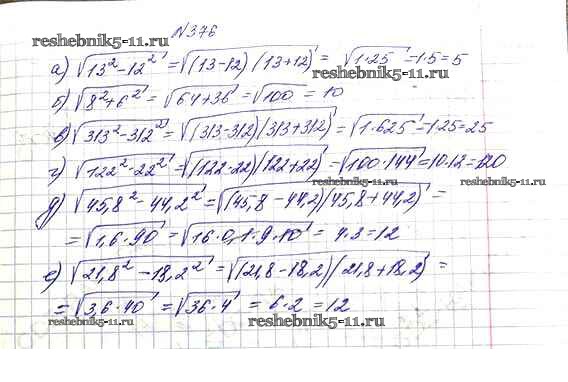 №376
reshebnik5-11.ru
reshebnik5-11.ru
а) √(13² - 12²) = √((13-12)(13+12)) = √(1·25) = 1·5 = 5
б) √(8² + 6²) = √(64+36) = √100 = 10
в) √(313² - 312²) = √((313-312)(313+312)) = √(1·625) = 1·25 = 25
г) √(122² - 22²) = √((122-22)(122+22)) = √(100·144) = 10·12 = 120
reshebnik5-11.ru
reshebnik5-11.ru
д) √(45,8² - 44,2²) = √((45,8 - 44,2)(45,8 + 44,2)) =
= √(1,6·90) = √(16·0,1·9·10) = 4·3 = 12
е) √(21,8² - 18,2²) = √((21,8 - 18,2)(21,8 + 18,2)) =
= √(3,6·40) = √(36·4) = 6·2 = 12
reshebnik5-11.ru
reshebnik5-11.ru